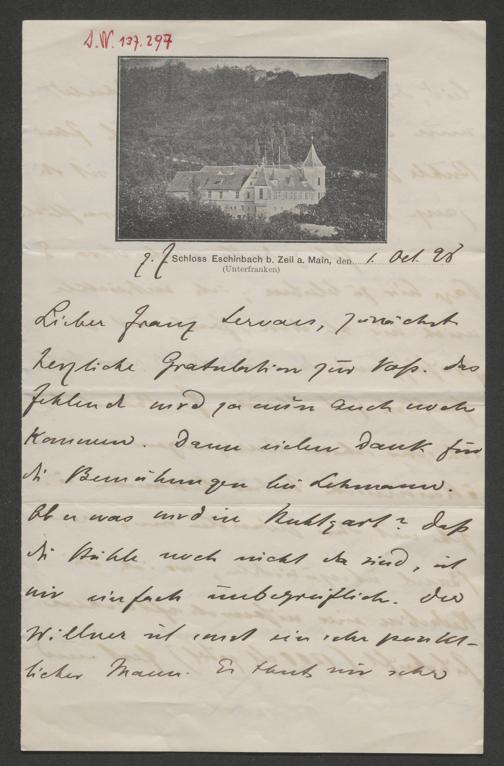 I.N. 137.297
z. Z. Schloss Eschinbach b. Zeil a. Main, den 1. Oct. 98
(Unterfranken)
Lieber Franz Servaes, zunächst
herzliche Gratulation zur Voß. Das
fehlende wird ja nun auch noch
kommen. Dann vielen Dank für
die Bemühungen bei Lehmann.
Ob er was wird in Stuttgart? Daß
die Stühle noch nicht da sind, ist
mir einfach unbegreiflich. Der
Willner ist sonst ein sehr pünkt-
licher Mann. Es thut mir sehr